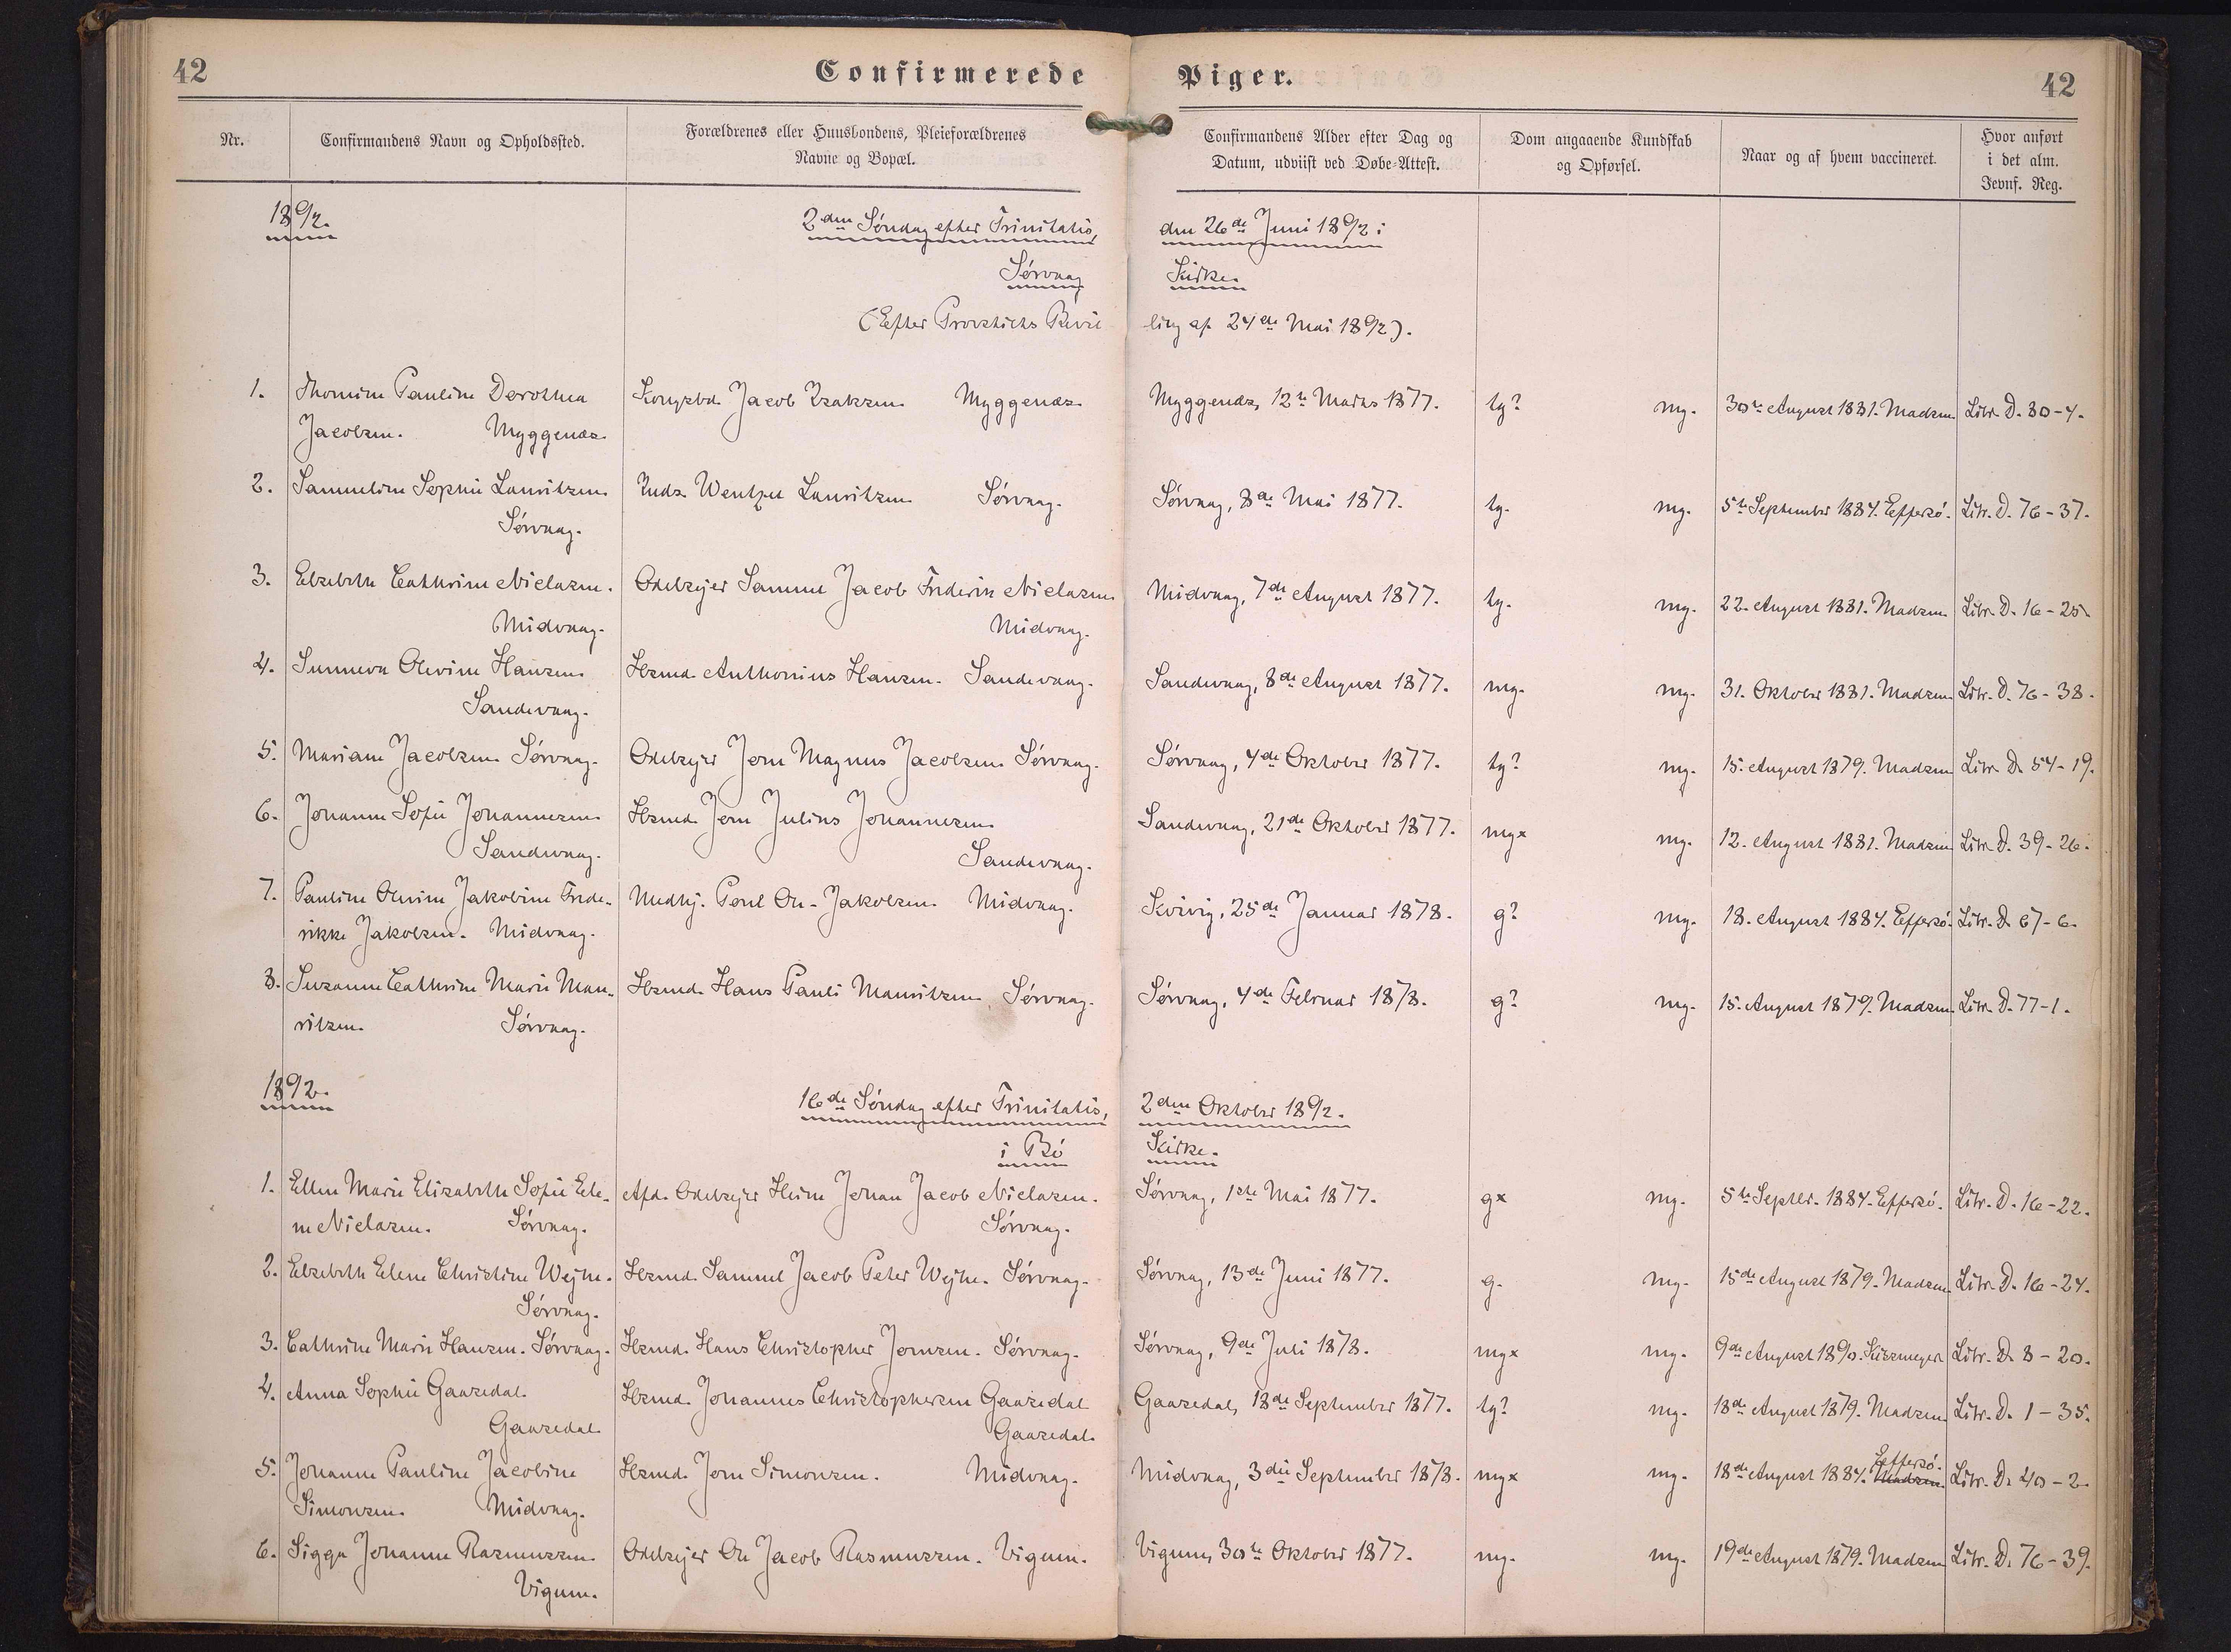 42 Confirmerede Piger. 42
Nr. Confirmandens Navn og Opholdssted. Forældrenes eller Huusbondens, Pleieforældrenes Navne og Bopæl. Confirmandens Alder efter Dag og Datum, udviist ved Døbe-Attest. Dom angaaende Kundskab og Opførsel. Naar og af hvem vaccineret. Hvor anført i det alm. Jevnf. Reg.
1892. 2den Søndag efter Trinitatis, den 26de Juni 1892 i
Sørvaag Kirke.
(Efter Provstiets Bevilling af 24de Mai 1892).
1. Thomine Pauline Dorothea Kongsbd. Jacob Isaksen Myggenæs Myggenæs, 12te Marts 1877. tg? mg. 30te August 1881. Madsen Litr. D. 80-4.
Jacobsen. Myggenæs.
2. Samueline Sophie Lauritzen Inds. Wentzel Lauritzen Sørvaag. Sørvaag, 8de Mai 1877. tg. mg. 5te September 1884. Effersö. Litr. D. 76-37.
Sørvaag.
3. Elsebeth Cathrine Nielasen. Odelsejer Samuel Jacob Frederik Nielasen Midvaag, 7de August 1877. tg. mg. 22. August 1881. Madsen Litr. D. 16-25.
Midvaag. Midvaag.
4. Sunneva Olevine Hansen Hsmd. Anthonius Hansen. Sandevaag. Sandevaag, 8de August 1877. mg. mg. 31. Oktober 1881. Madsen Litr. D. 76-38.
Sandevaag.
5. Mariane Jacobsen Sørvaag. Odelsejer Joen Magnus Jacobsen Sørvaag. Sørvaag, 4de Oktober 1877. tg? mg. 15. August 1879. Madsen Litr. D. 54-19.
6. Johanne Sofie Johannesen Hsmd. Joen Julius Johannesen Sandevaag, 21de Oktober 1877. mg× mg. 12. August 1881. Madsen Litr. D. 39-26.
Sandevaag. Sandevaag.
7. Pauline Olevine Jakobine Frede- Medhj. Poul Ole Jakobsen Midvaag. Kvivig, 25de Januar 1878. g? mg. 18. August 1884. Effersö. Litr. D. 67-6.
rikke Jakobsen. Midvaag.
8. Susanne Cathrine Marie Mau- Hsmd. Hans Pauli Mauritzen Sørvaag. Sørvaag, 4de Februar 1878. g? mg. 15. August 1879. Madsen. Litr. D. 77-1.
ritzen. Sørvaag.
1892. 16de Søndag efter Trinitatis, 2den Oktober 1892.
i Bö Kirke.
1. Ellen Marie Elisabeth Sofie Ele- Afd. Odelsejer Heine Johan Jacob Nielasen. Sørvaag, 1ste Mai 1877. g× mg. 5te Septbr. 1884. Effersö. Litr. D. 16-22.
ne Nielasen. Sørvaag. Sørvaag.
2. Elsebeth Elene Christine Wejhe. Hsmd. Samuel Jacob Peter Wejhe. Sørvaag. Sørvaag, 13de Juni 1877. g. mg. 15de August 1879. Madsen Litr. D. 16-24.
Sørvaag.
3. Cathrine Marie Hansen. Sørvaag. Hsmd. Hans Christopher Joensen. Sørvaag. Sørvaag, 9de Juli 1878. mg× mg. 9de August 1890. Litr. D. 8-20.
4. Anna Sophie Gaasedal. Hsmd. Johannes Christophersen Gaasedal Gaasedal, 18de September 1877. tg? mg. 18de August 1879. Madsen Litr. D. 1-35.
Gaasedal. Gaasedal.
5. Johanne Pauline Jacobine Hsmd. Joen Simonsen. Midvaag. Midvaag, 3die September 1878. mg× mg. 18de August 1884. Madsen. Effersö. Litr. D. 40-2.
Simonsen. Midvaag.
6. Sigga Johanne Rasmussen. Odelsejer Ole Jacob Rasmussen. Vigum. Vigum, 30te Oktober 1877. mg. mg. 19de August 1879. Madsen Litr. D. 76-39.
Vigum.